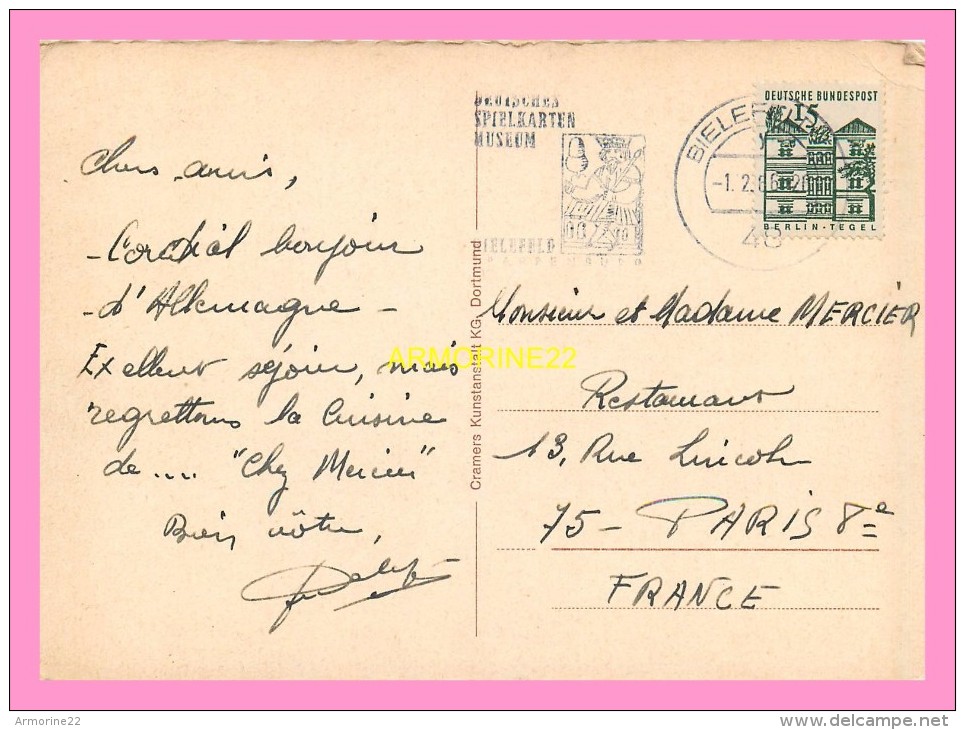 DEUTSCHES
SPIELKARTEN
MUSEUM
BIELEFELD
BIELEFELD
-1.2.66
48
DEUTSCHE BUNDESPOST
15
BERLIN-TEGEL
Chers amis,
Cordial bonjour
d'Allemagne -
Excellent séjour, mais
regrettons la cuisine
de.... "Chez Mercier"
Bien vôtre,
Cramers Kunstanstalt KG. Dortmund
Monsieur et Madame MERCIER
Restaurant
13, Rue Lincoln
75 - PARIS 8e
FRANCE
ARMORINE22
Armorine22
delcampe.net